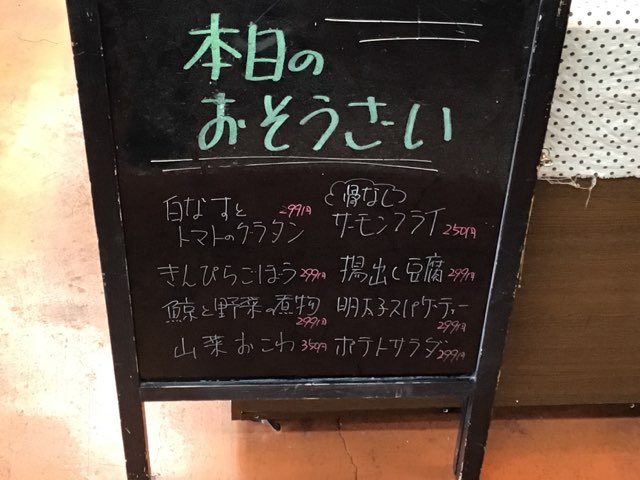 本日の
おそうざい
白なすと 299円
トマトのグラタン
きんぴらごぼう 299円
鯨と野菜の煮物
299円
山菜おこわ 350円
骨なし
サーモンフライ 250円
揚出し豆腐 299円
明太子スパゲーティー
299円
ポテトサラダ 299円